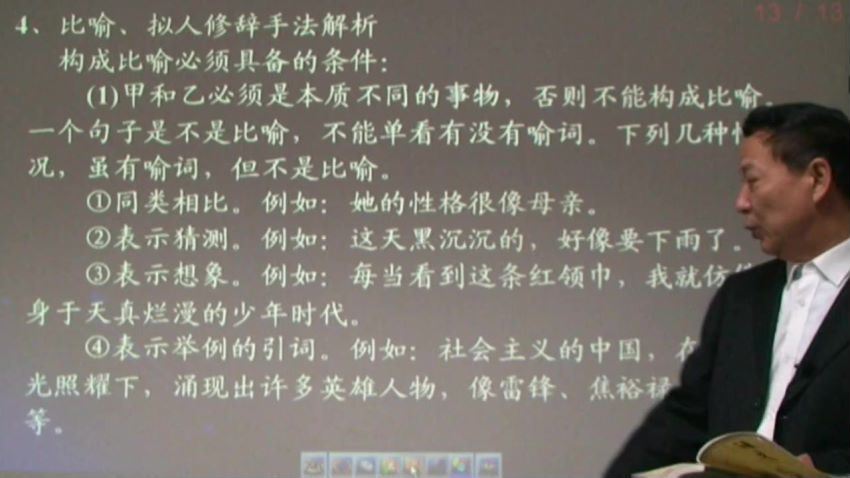 13 / 13
4、比喻、拟人修辞手法解析
构成比喻必须具备的条件：
(1)甲和乙必须是本质不同的事物，否则不能构成比喻。
一个句子是不是比喻，不能单看有没有喻词。下列几种
况，虽有喻词，但不是比喻。
①同类相比。例如：她的性格很像母亲。
②表示猜测。例如：这天黑沉沉的，好像要下雨了。
③表示想象。例如：每当看到这条红领巾，我就仿
身于天真烂漫的少年时代。
④表示举例的引词。例如：社会主义的中国，在
光照耀下，涌现出许多英雄人物，像雷锋、焦裕禄
等。